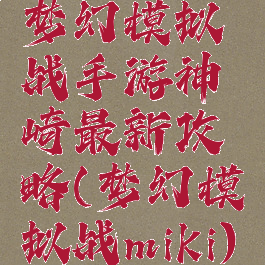 梦幻模拟
战手游神
崎最新攻
略(梦幻模
拟战miki)